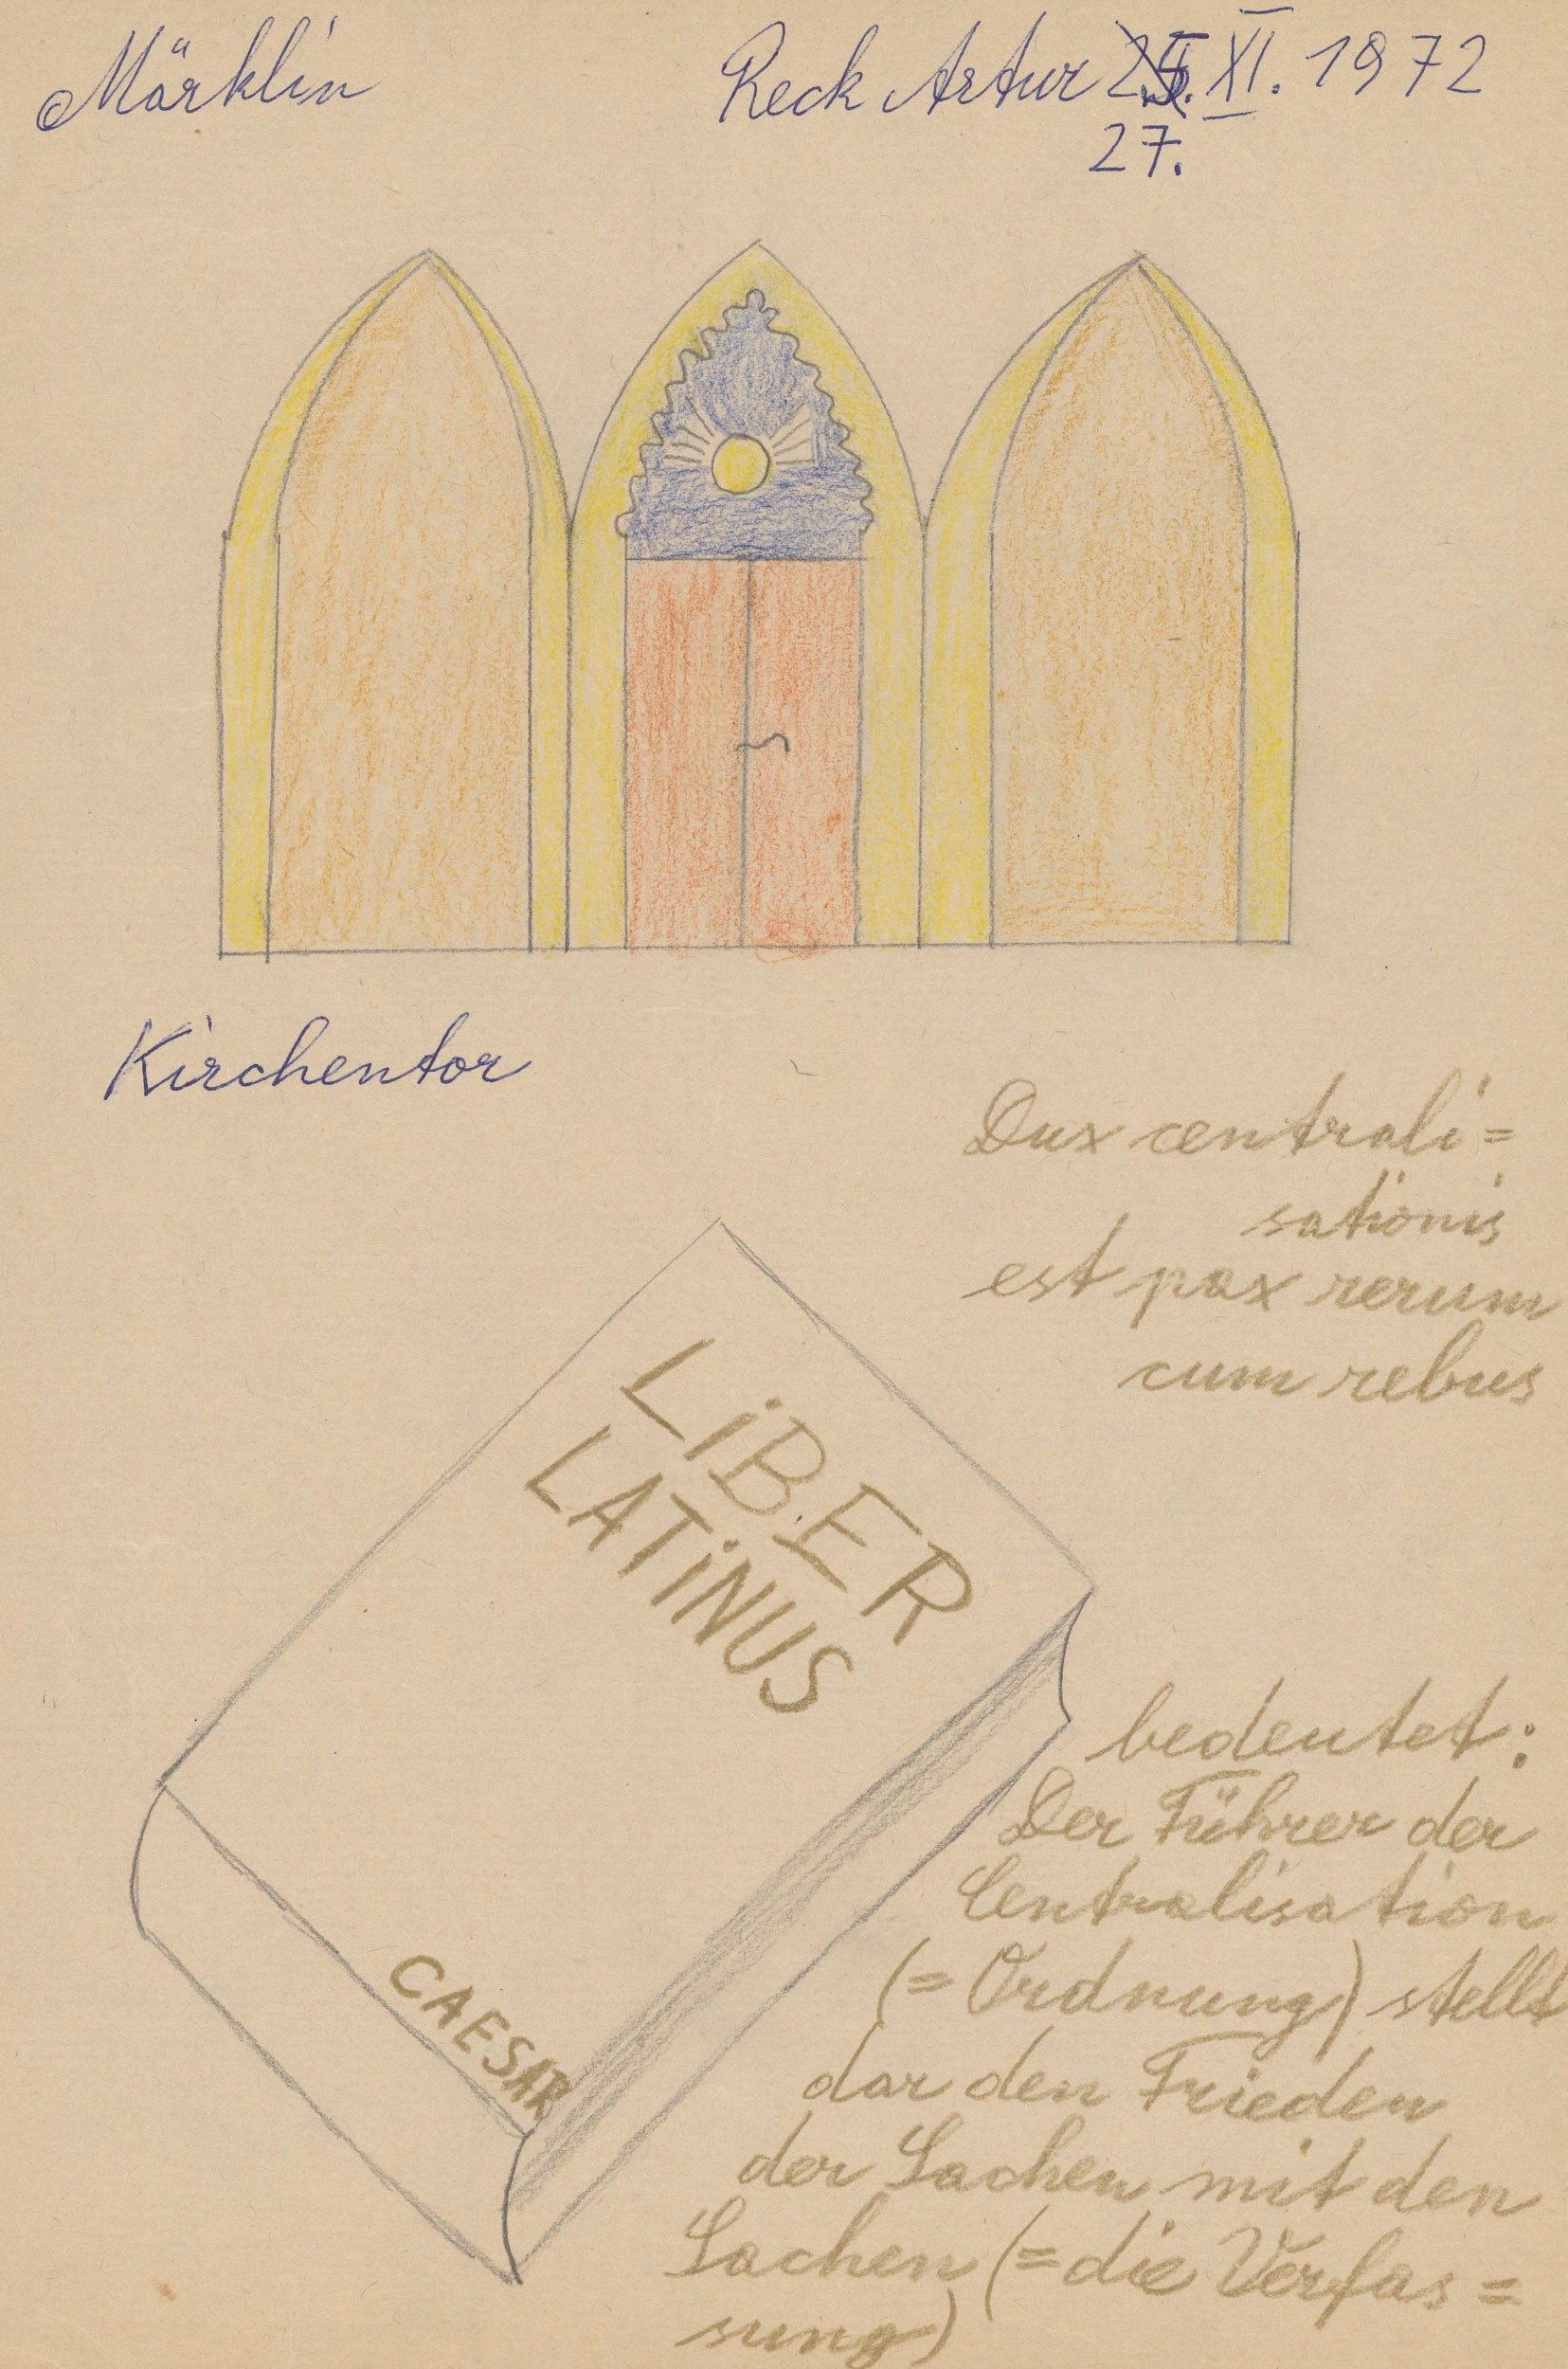 Märklin
Reck Artur 25. XI. 1972
27.
Kirchentor
Dux centrali=
sationis
est pax rerum
cum rebus
LiBER
LATiNUS
CAESAR
bedeutet:
Der Führer der
Centralisation
(= Ordnung) stellt
dar den Frieden
der Sachen mit den
Sachen (= die Verfas=
sung)